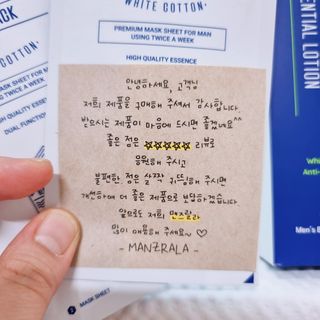 WHITE COTTON
PREMIUM MASK SHEET FOR MAN
USING TWICE A WEEK
HIGH QUALITY ESSENCE
안녕하세요 고객님
저희 제품을 구매해 주셔서 감사합니다.
받으시는 제품이 마음에 드시면 좋겠네요^^
좋은 점은 ★★★★★ 리뷰로
응원해 주시고
불편한 점은 살짝 귀띔해 주시면
개선하여 더 좋은 제품으로 보답하겠습니다
앞으로도 저희 맨즈랄라
많이 애용해 주세요~ ♡
- MANZRALA -
CK
COTTON
MASK SHEET FOR M
TWICE A WEEK
QUALITY ESSENCE
DUAL FUNCTION
MASK SHEET
ENTIAL LOTION
Whi
Anti-
Men's B